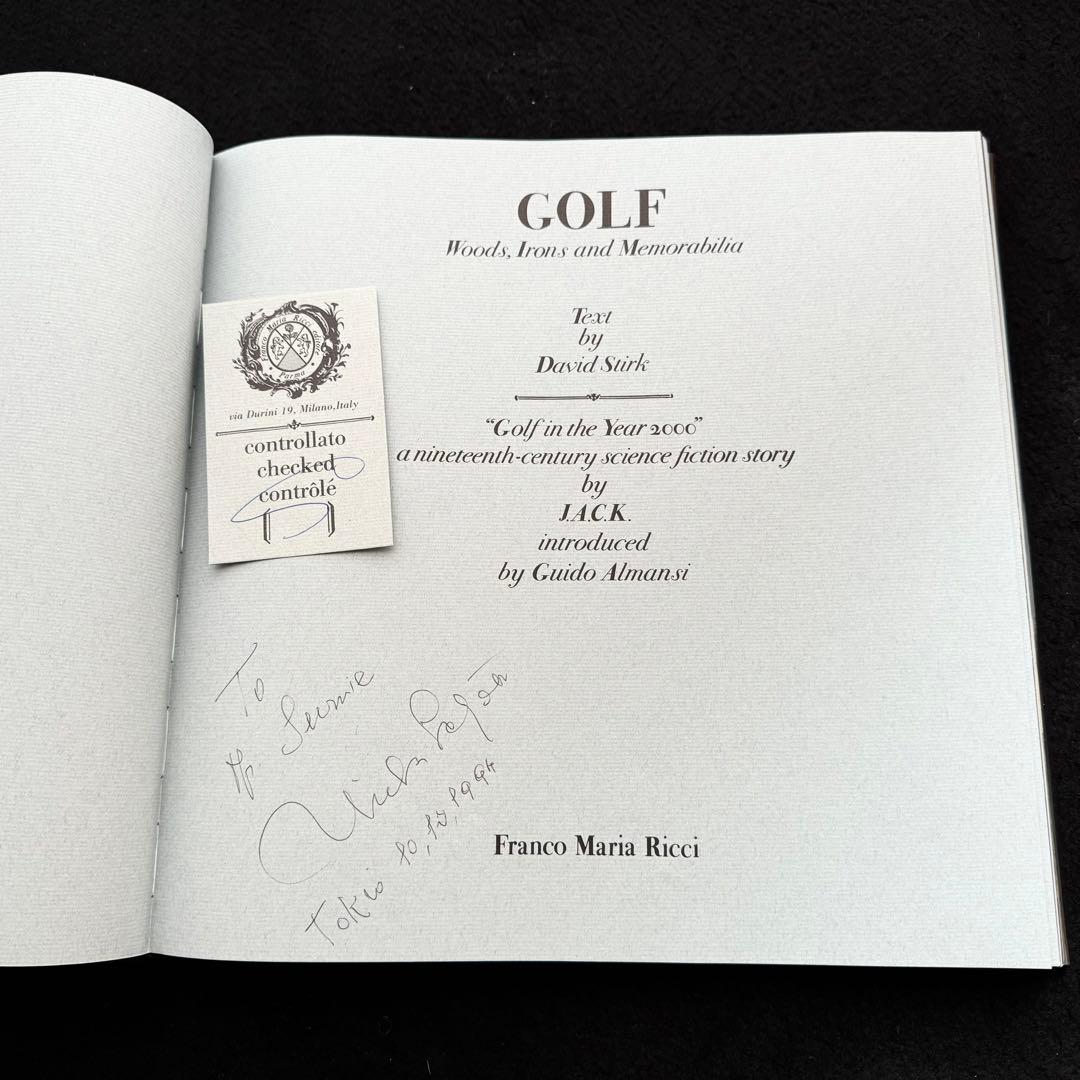 GOLF
Woods, Irons and Memorabilia
Text
by
David Stirk
"Golf in the Year 2000"
a nineteenth-century science fiction story
by
J.A.C.K.
introduced
by Guido Almansi
Franco Maria Ricci
Franco Maria Ricci editore
Parma
via Durini 19, Milano, Italy
controllato
checked
contrôlé
To
Tokio 10,12,1994